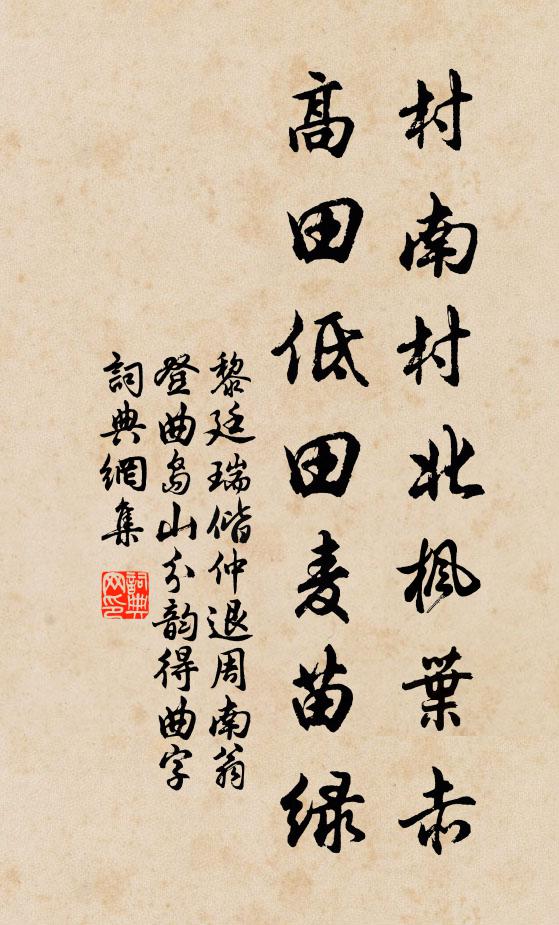 村南村北楓葉赤
高田低田麦苗緑
黎廷瑞偕仲退周南翁
登曲島山分韵得曲字
詞典網集
詞典
网印